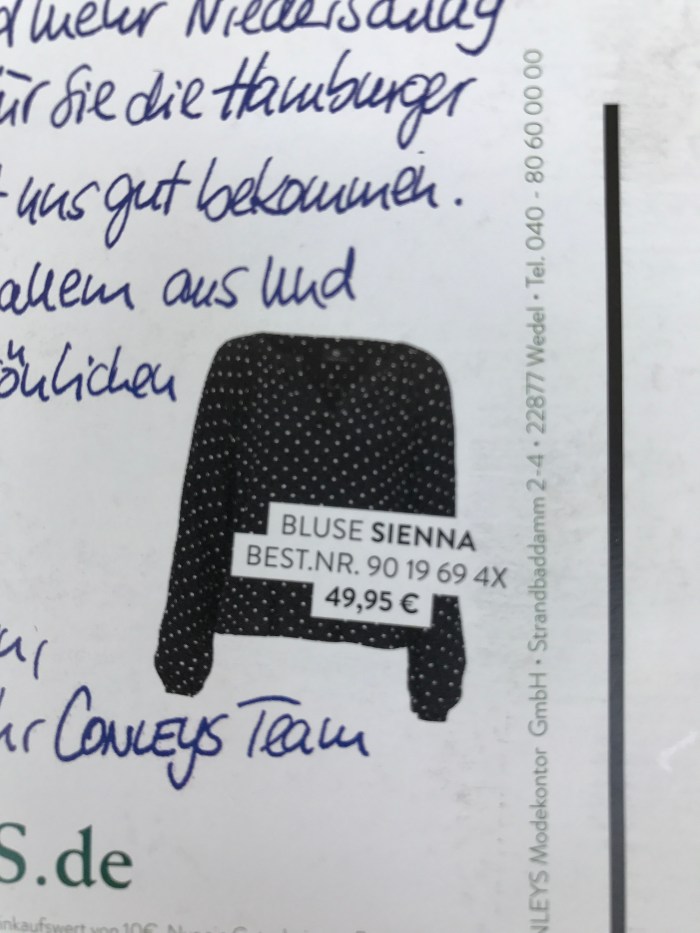 mehr Niederschlag
für Sie die Hamburger
uns gut bekommen.
allem aus und
BLUSE SIENNA
BEST.NR. 90 19 69 4X
49,95 €
Conleys Team
S.de
von 10€.
NLEYS Modekontor GmbH • Strandbaddamm 2-4 • 22877 Wedel • Tel. 040 - 80 60 00 00